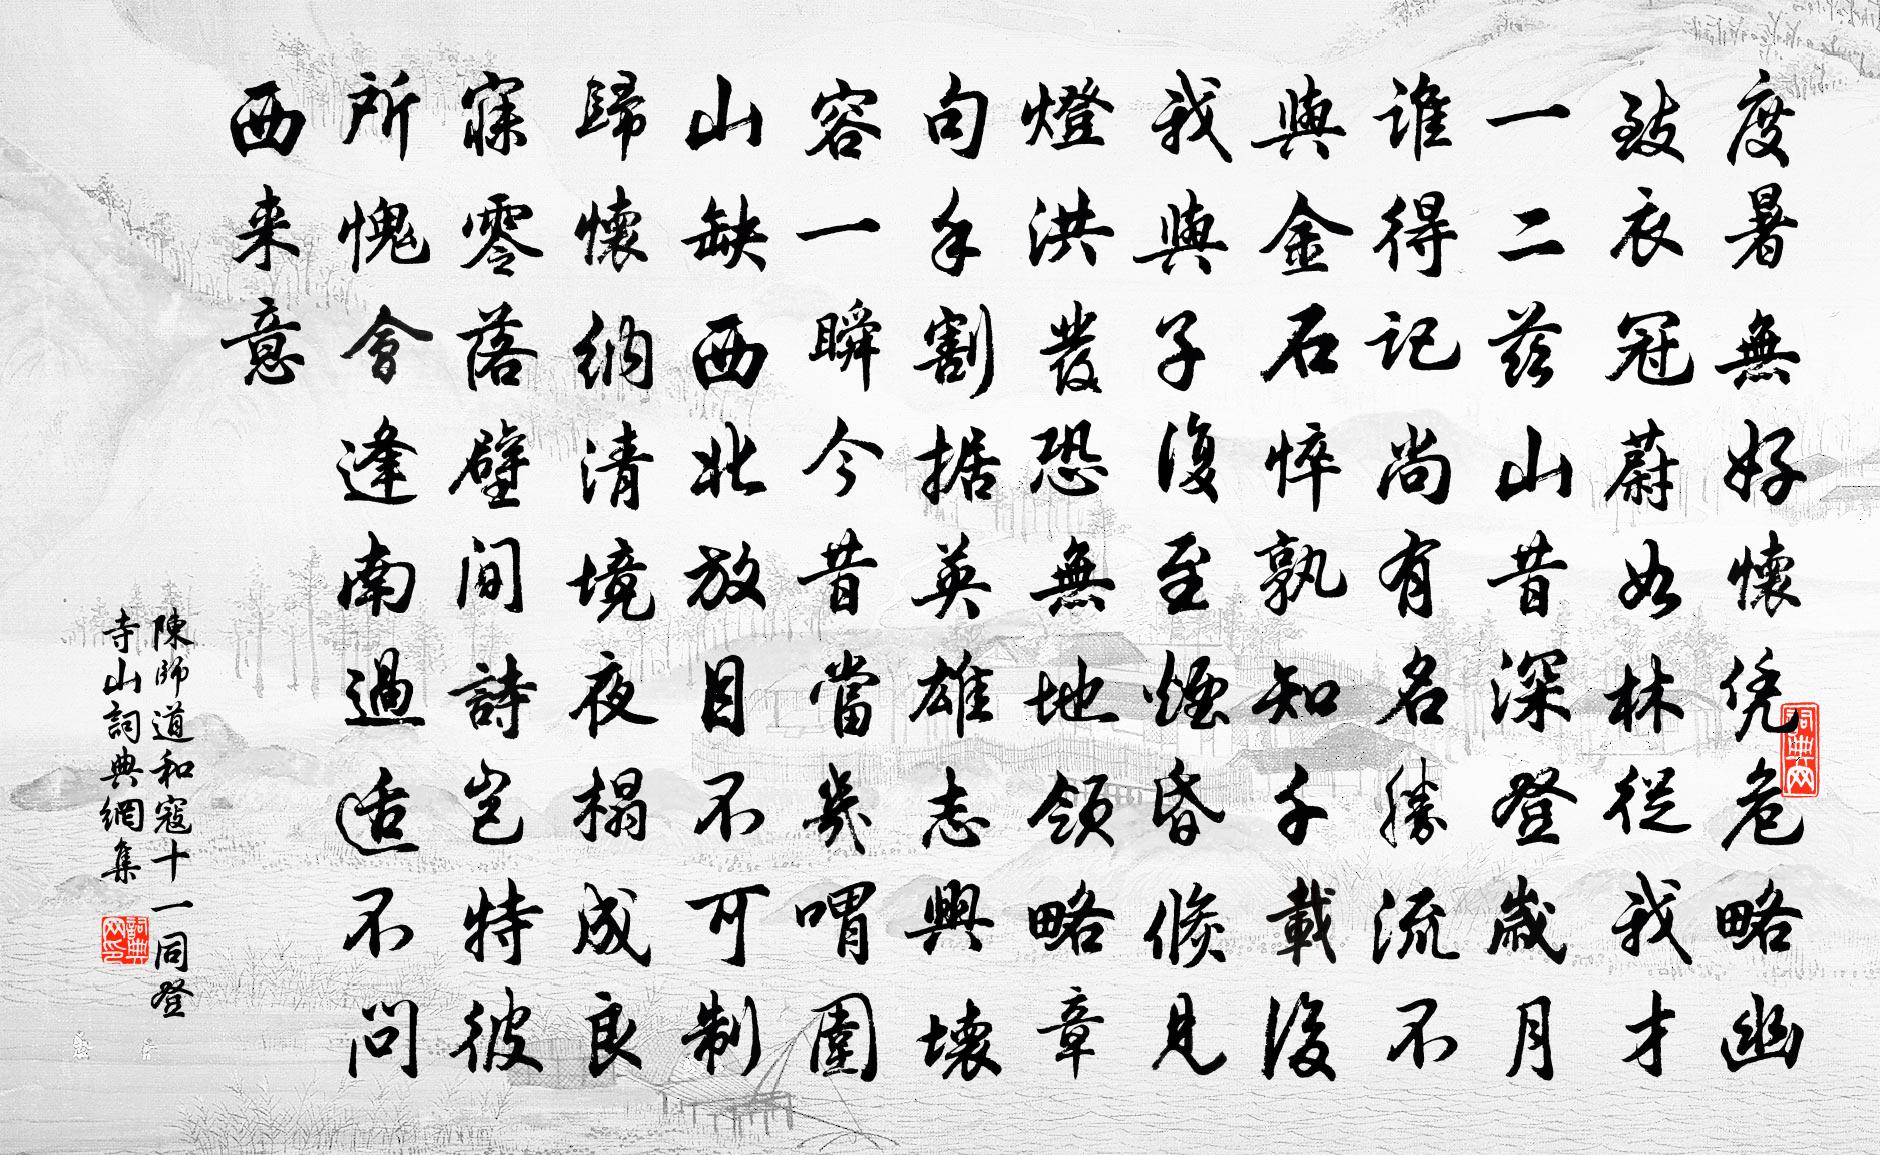 度暑無好懷凭危略幽
致衣冠蔚如林從我才
一二茲山昔深登歲月
誰得記尚有名勝流不
與金石悴孰知千載後
我與子復至煙昏倏見
燈洪發恐無地領略章
句手割据英雄志興壞
容一瞬今昔當幾喟圍
山缺西北放目不可制
歸懷納清境夜榻成良
寐零落壁間詩豈特彼
所愧會逢南過适不問
西来意
陳師道和寇十一同登
寺山詞典網集
词典网
詞典网印